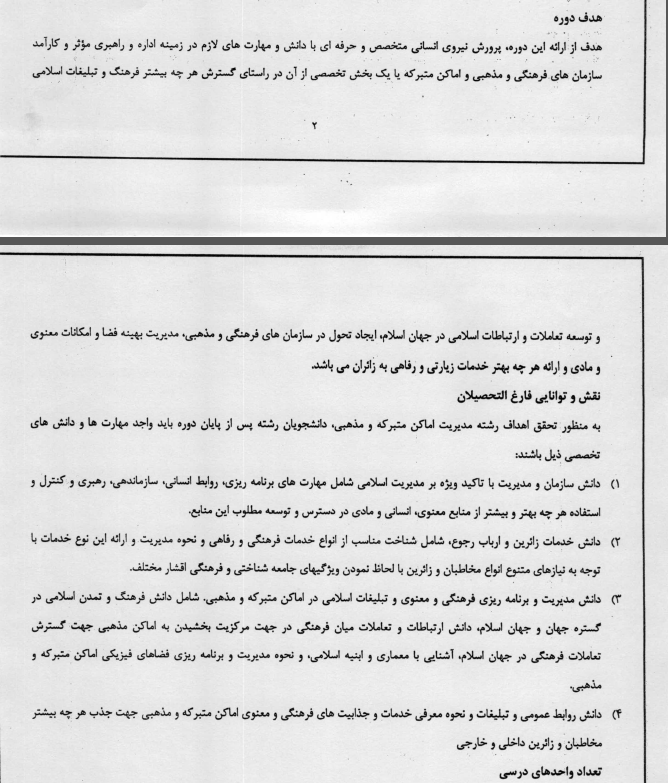 هدف دوره
هدف از ارائه این دوره، پرورش نیروی انسانی متخصص و حرفه ای با دانش و مهارت های لازم در زمینه اداره و راهبری مؤثر و کارآمد
سازمان های فرهنگی و مذهبی و اماکن متبرکه یا یک بخش تخصصی از آن در راستای گسترش هر چه بیشتر فرهنگ و تبلیغات اسلامی
۲
و توسعه تعاملات و ارتباطات اسلامی در جهان اسلام، ایجاد تحول در سازمان های فرهنگی و مذهبی، مدیریت بهینه فضا و امکانات معنوی
و مادی و ارائه هر چه بهتر خدمات زیارتی و رفاهی به زائران می باشد.
نقش و توانایی فارغ التحصیلان
به منظور تحقق اهداف رشته مدیریت اماکن متبرکه و مذهبی، دانشجویان رشته پس از پایان دوره باید واجد مهارت ها و دانش های
تخصصی ذیل باشند:
۱) دانش سازمان و مدیریت با تاکید ویژه بر مدیریت اسلامی شامل مهارت های برنامه ریزی، روابط انسانی، سازماندهی، رهبری و کنترل و
استفاده هر چه بهتر و بیشتر از منابع معنوی، انسانی و مادی در دسترس و توسعه مطلوب این منابع.
۲) دانش خدمات زائرین و ارباب رجوع، شامل شناخت مناسب از انواع خدمات فرهنگی و رفاهی و نحوه مدیریت و ارائه این نوع خدمات با
توجه به نیازهای متنوع انواع مخاطبان و زائرین با لحاظ نمودن ویژگیهای جامعه شناختی و فرهنگی اقشار مختلف.
۳) دانش مدیریت و برنامه ریزی فرهنگی و معنوی و تبلیغات اسلامی در اماکن متبرکه و مذهبی. شامل دانش فرهنگ و تمدن اسلامی در
گستره جهان و جهان اسلام، دانش ارتباطات و تعاملات میان فرهنگی در جهت مرکزیت بخشیدن به اماکن مذهبی جهت گسترش
تعاملات فرهنگی در جهان اسلام، آشنایی با معماری و ابنیه اسلامی، و نحوه مدیریت و برنامه ریزی فضاهای فیزیکی اماکن متبرکه و
مذهبی.
۴) دانش روابط عمومی و تبلیغات و نحوه معرفی خدمات و جذابیت های فرهنگی و معنوی اماکن متبرکه و مذهبی جهت جذب هر چه بیشتر
مخاطبان و زائرین داخلی و خارجی
تعداد واحدهای درسی